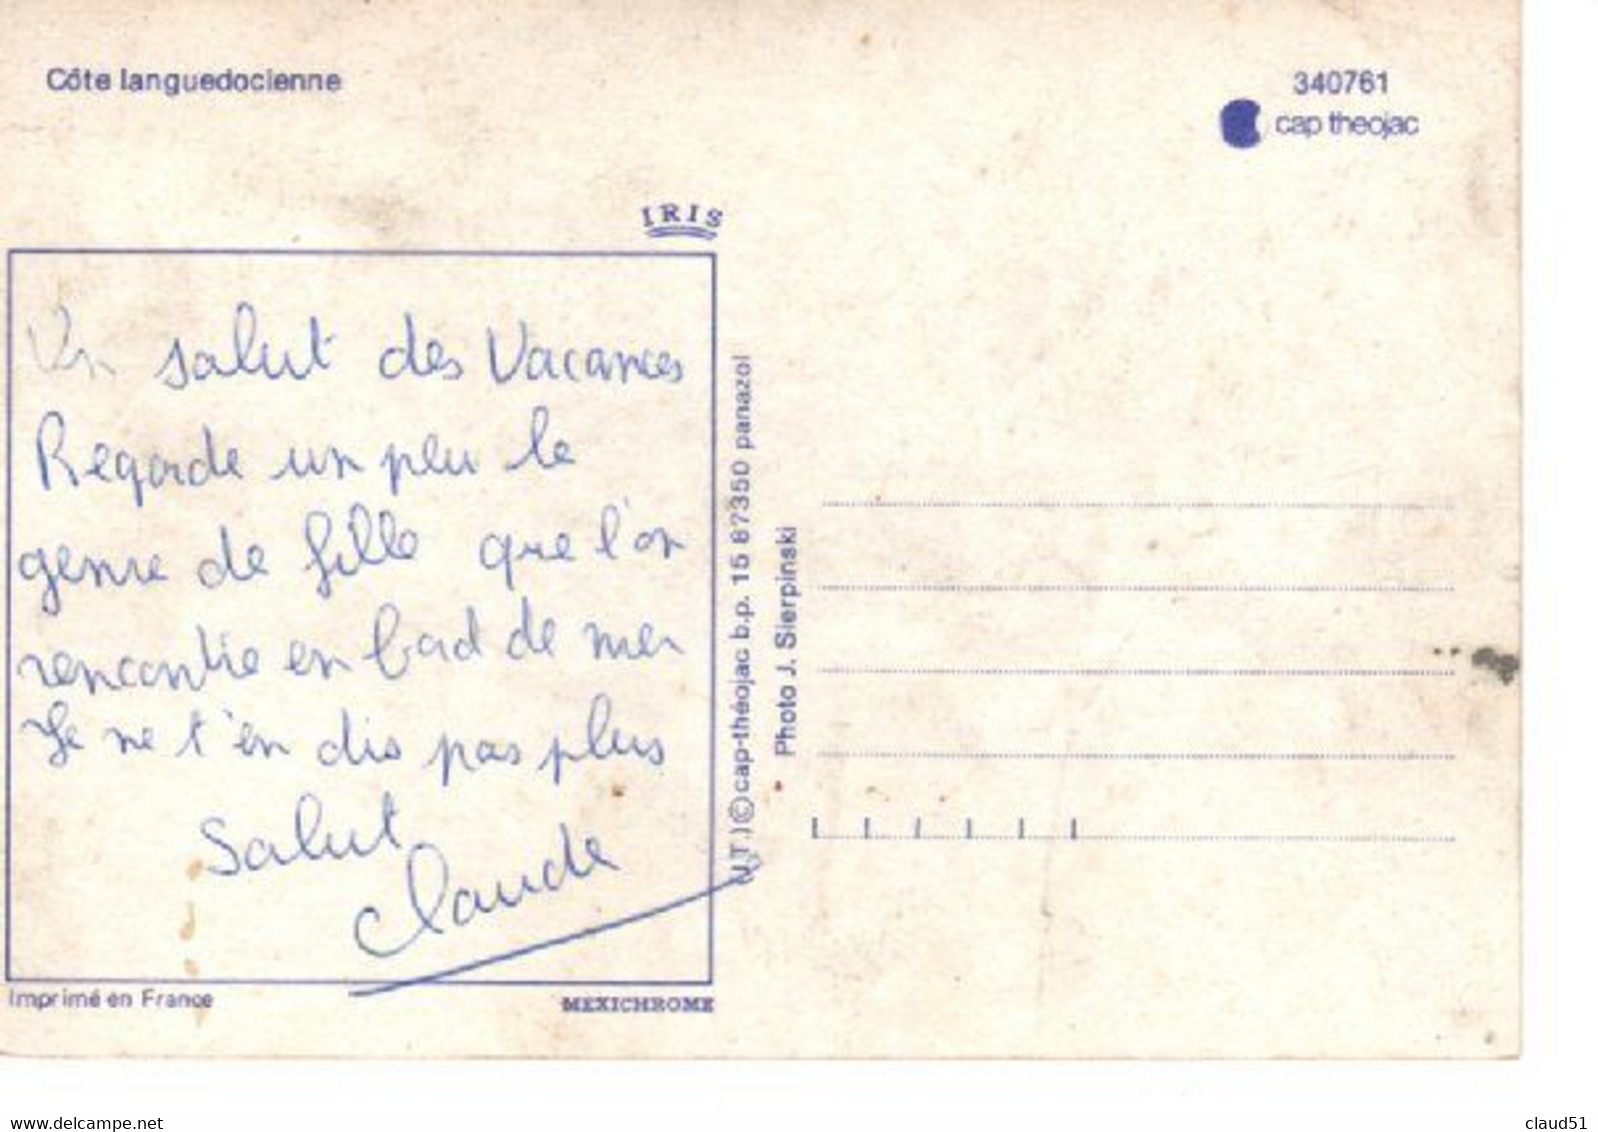 Côte languedocienne
340761
cap theojac
IRIS
Un salut des Vacances
Regarde un peu le
genre de fille que l'on
rencontre en bord de mer
Je ne t'en dis pas plus
Salut
Claude
Imprimé en France
MEXICHROME
N.T.)©cap-théojac b.p. 15 87350 panazol
Photo J. Sierpinski
www.delcampe.net
claud51